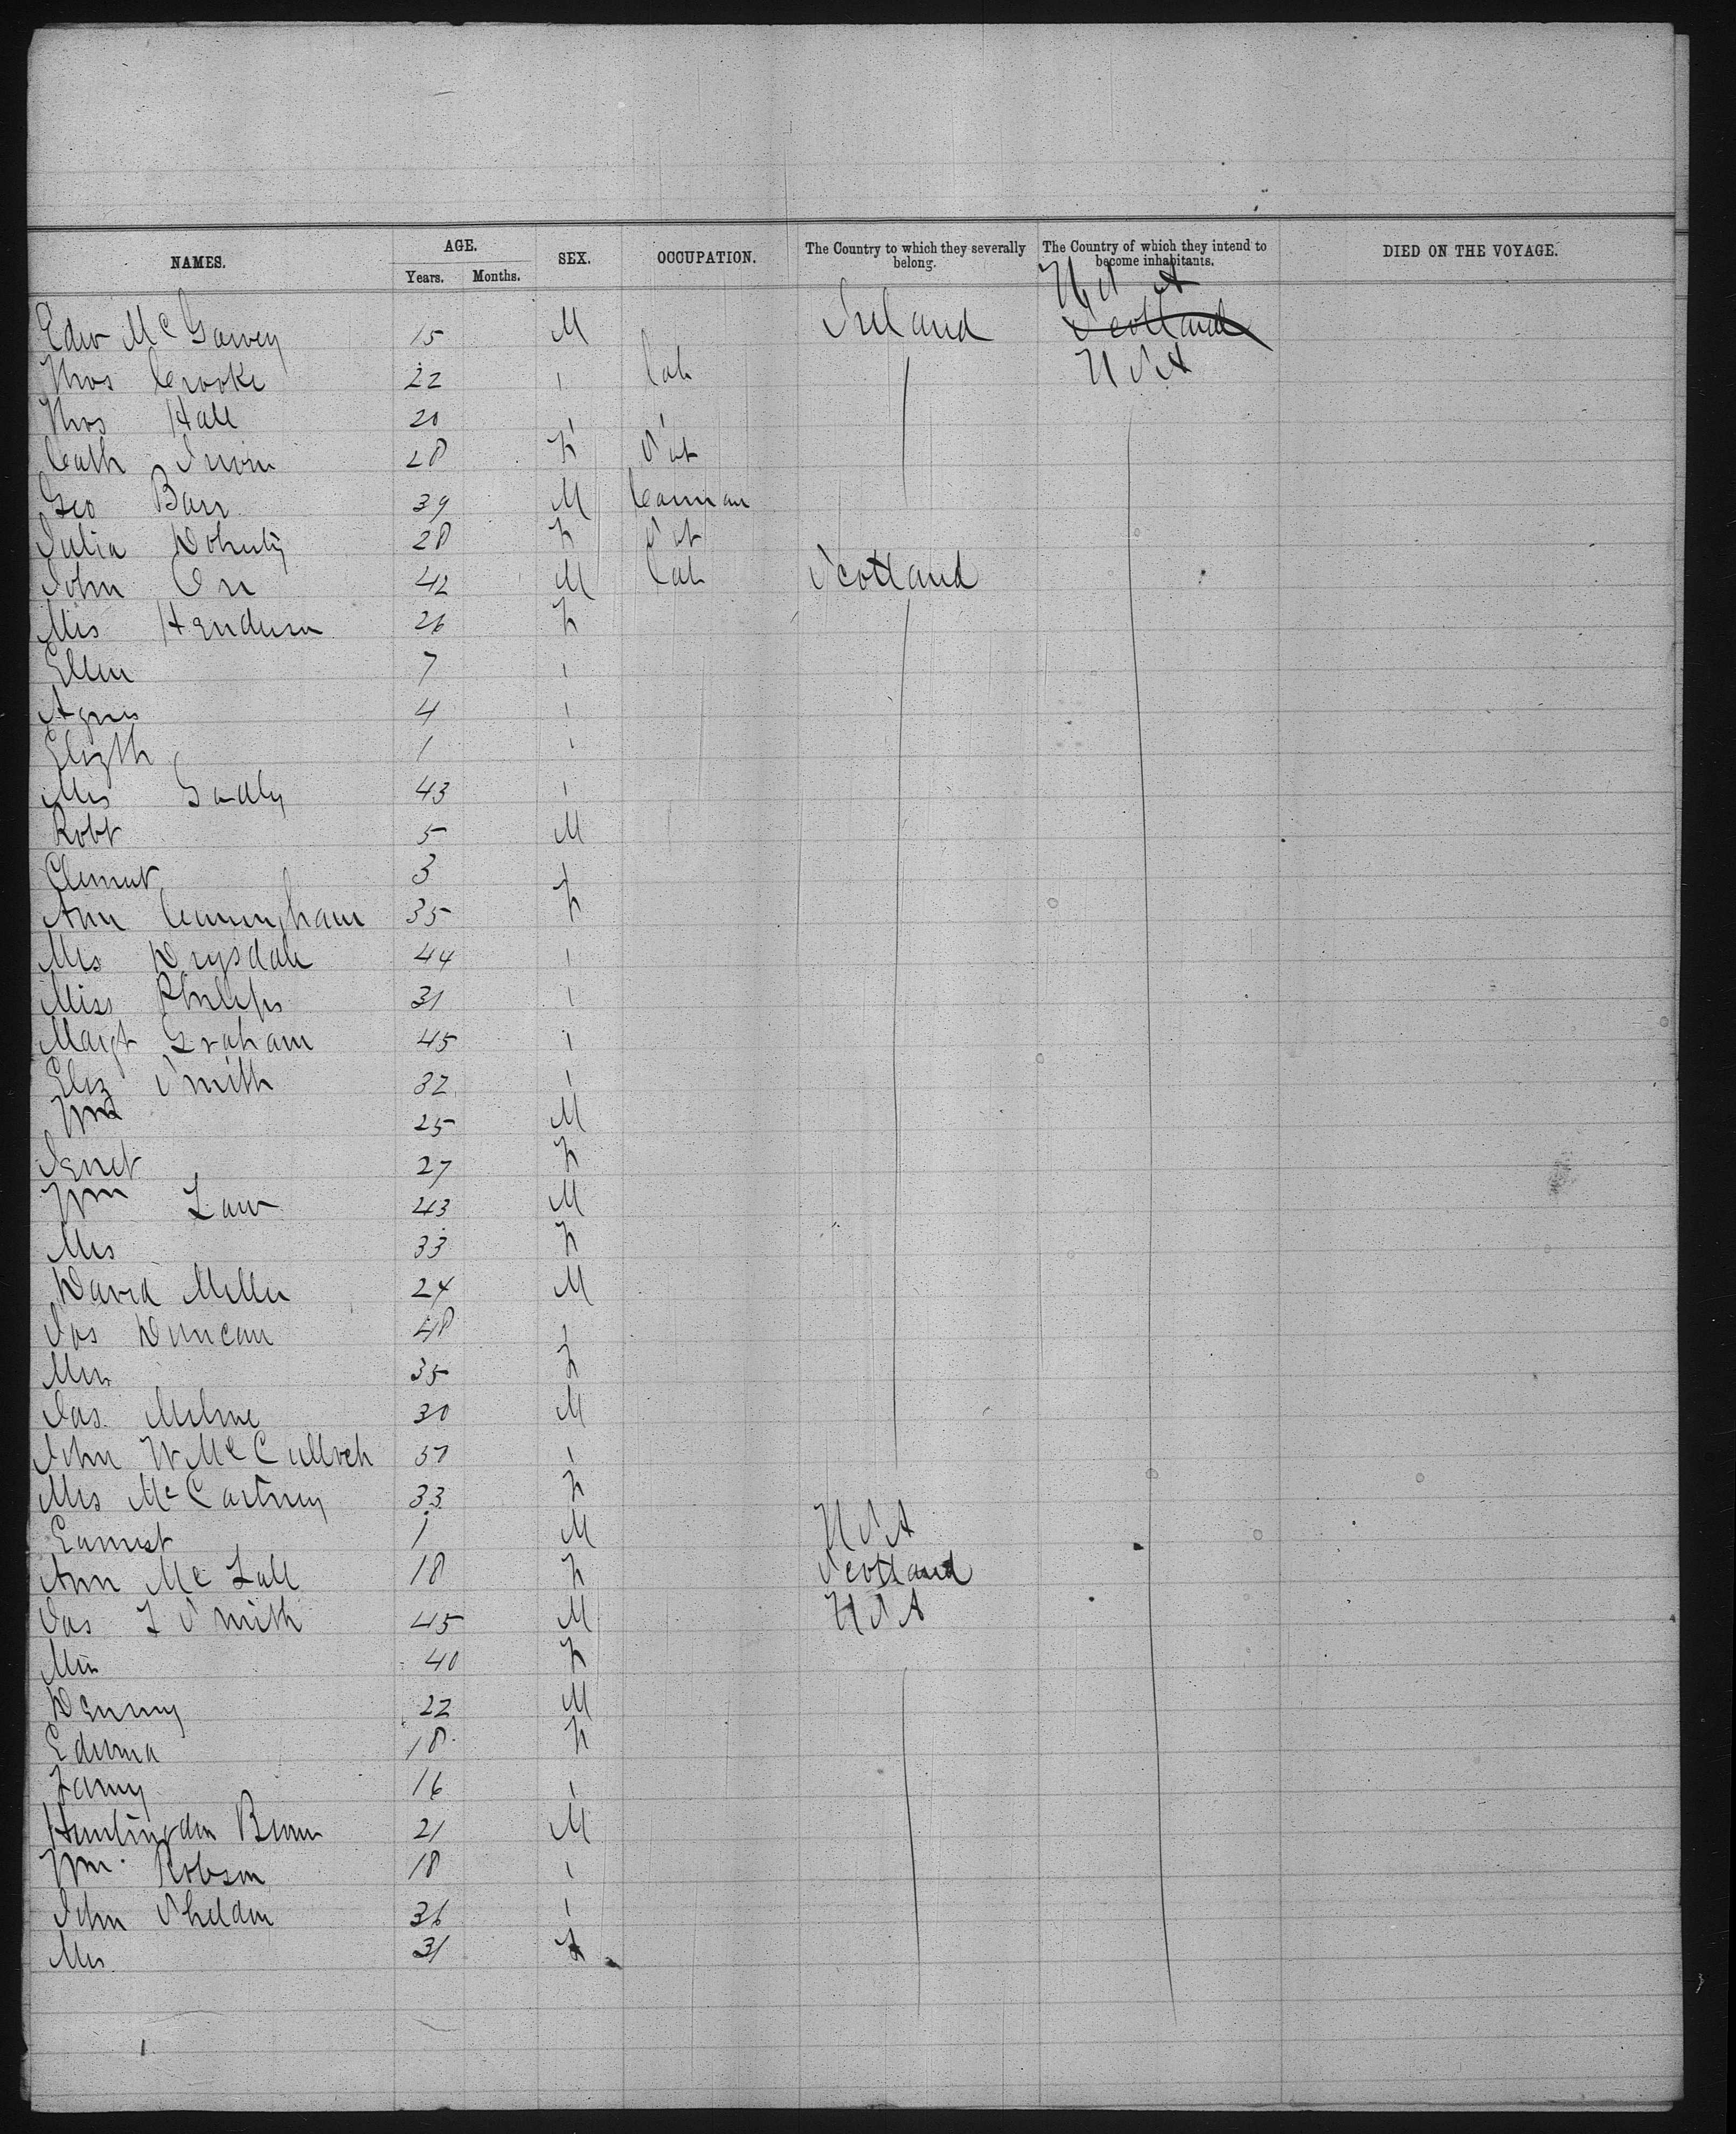 NAMES. AGE. SEX. OCCUPATION. The Country to which they severally belong. The Country of which they intend to become inhabitants. DIED ON THE VOYAGE.
Years. Months.
U S A
Edw McGarvey 15 M Ireland Scotland
Thos Crooke 22 " Lab U S A
Thos Hall 20 " "
Cath Irvin 28 F Sut
Geo Barr 39 M Carman
Julia Doherty 28 F Sut
John Orr 42 M Lab Scotland
Mrs Henderson 26 F
Ellen 7 "
Agnes 4 "
Elizth 1 "
Mrs 43 "
Robt 5 M
Clement 3 "
Ann Cunningham 35 F
Mrs Drysdale 44 "
Miss Philips 31 "
Margt Graham 45 "
Eliz Smith 32 "
Wm 25 M
Jenet 27 F
Wm Law 43 M
Mrs 33 F
David Miller 24 M
Jas Duncan 48 "
Mrs 35 F
Jas. Milne 30 M
John W McCulloch 57 "
Mrs McCartney 33 F
Earnest 1 M U S A
Ann Mc Fall 18 F Scotland
Jas F Smith 45 M U S A
Mrs 40 F
Denny 22 M
Edwina 18 F
Fanny 16 "
Huntingdon Brown 21 M
Wm. Robson 18 "
John Sheldon 36 "
Mrs 31 F